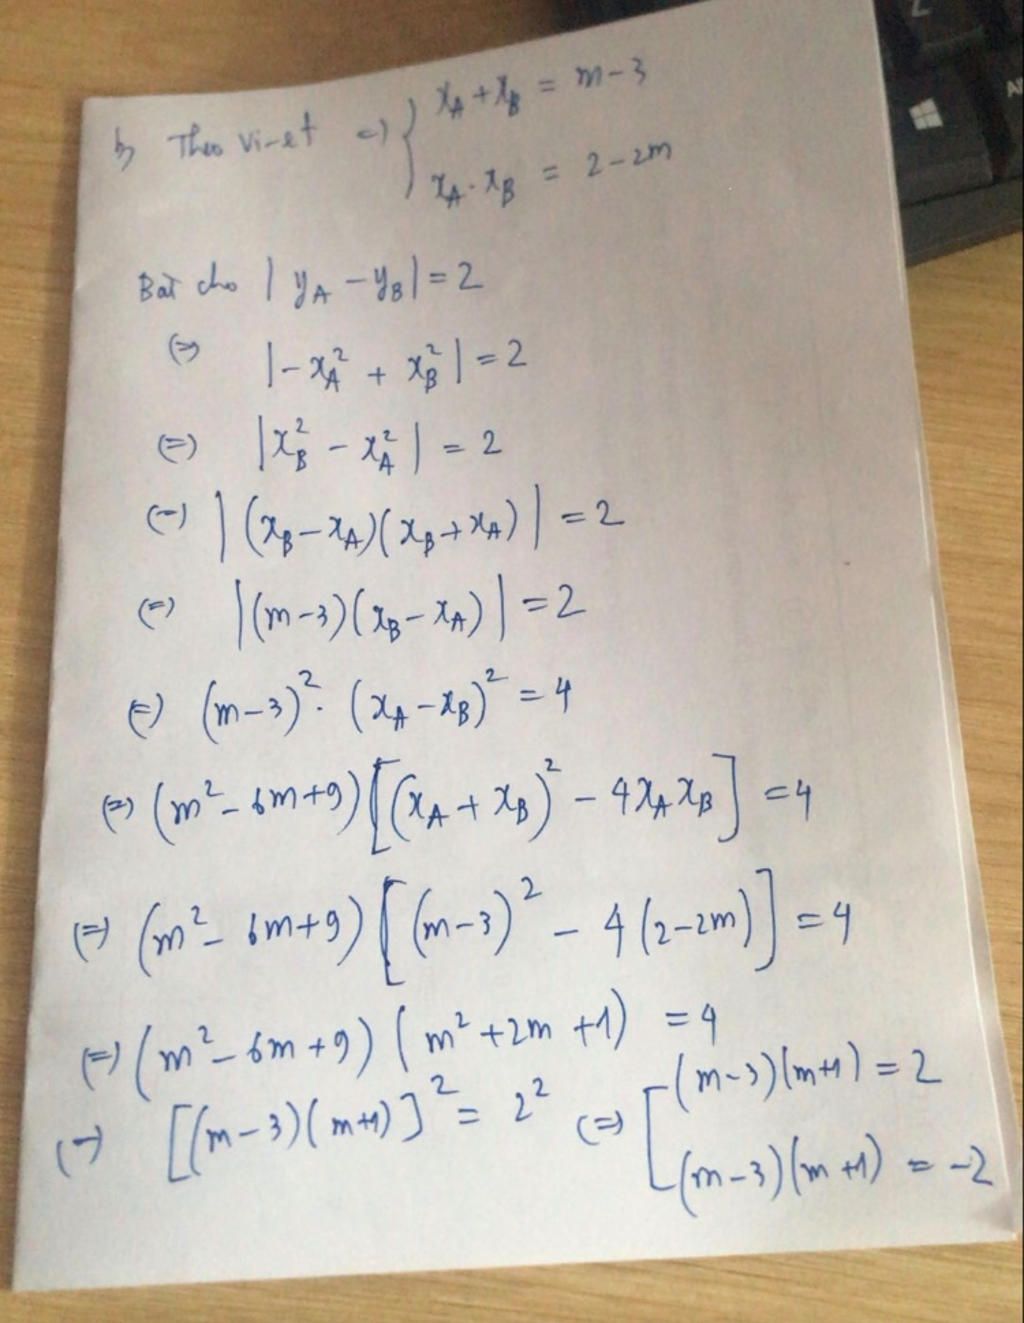 b, Theo Vi-et => { x_A + x_B = m-3
x_A . x_B = 2-2m
Bài cho | y_A - y_B | = 2
(=) | -x_A^2 + x_B^2 | = 2
(=) | x_B^2 - x_A^2 | = 2
(=) | (x_B - x_A)(x_B + x_A) | = 2
(=) | (m-3)(x_B - x_A) | = 2
(=) (m-3)^2 . (x_A - x_B)^2 = 4
(=) (m^2 - 6m+9) [ (x_A + x_B)^2 - 4x_A x_B ] = 4
(=) (m^2 - 6m+9) [ (m-3)^2 - 4(2-2m) ] = 4
(=) (m^2 - 6m+9) ( m^2 + 2m + 1) = 4
(=) [(m-3)(m+1)]^2 = 2^2 (=) [ (m-3)(m+1) = 2
(m-3)(m+1) = -2